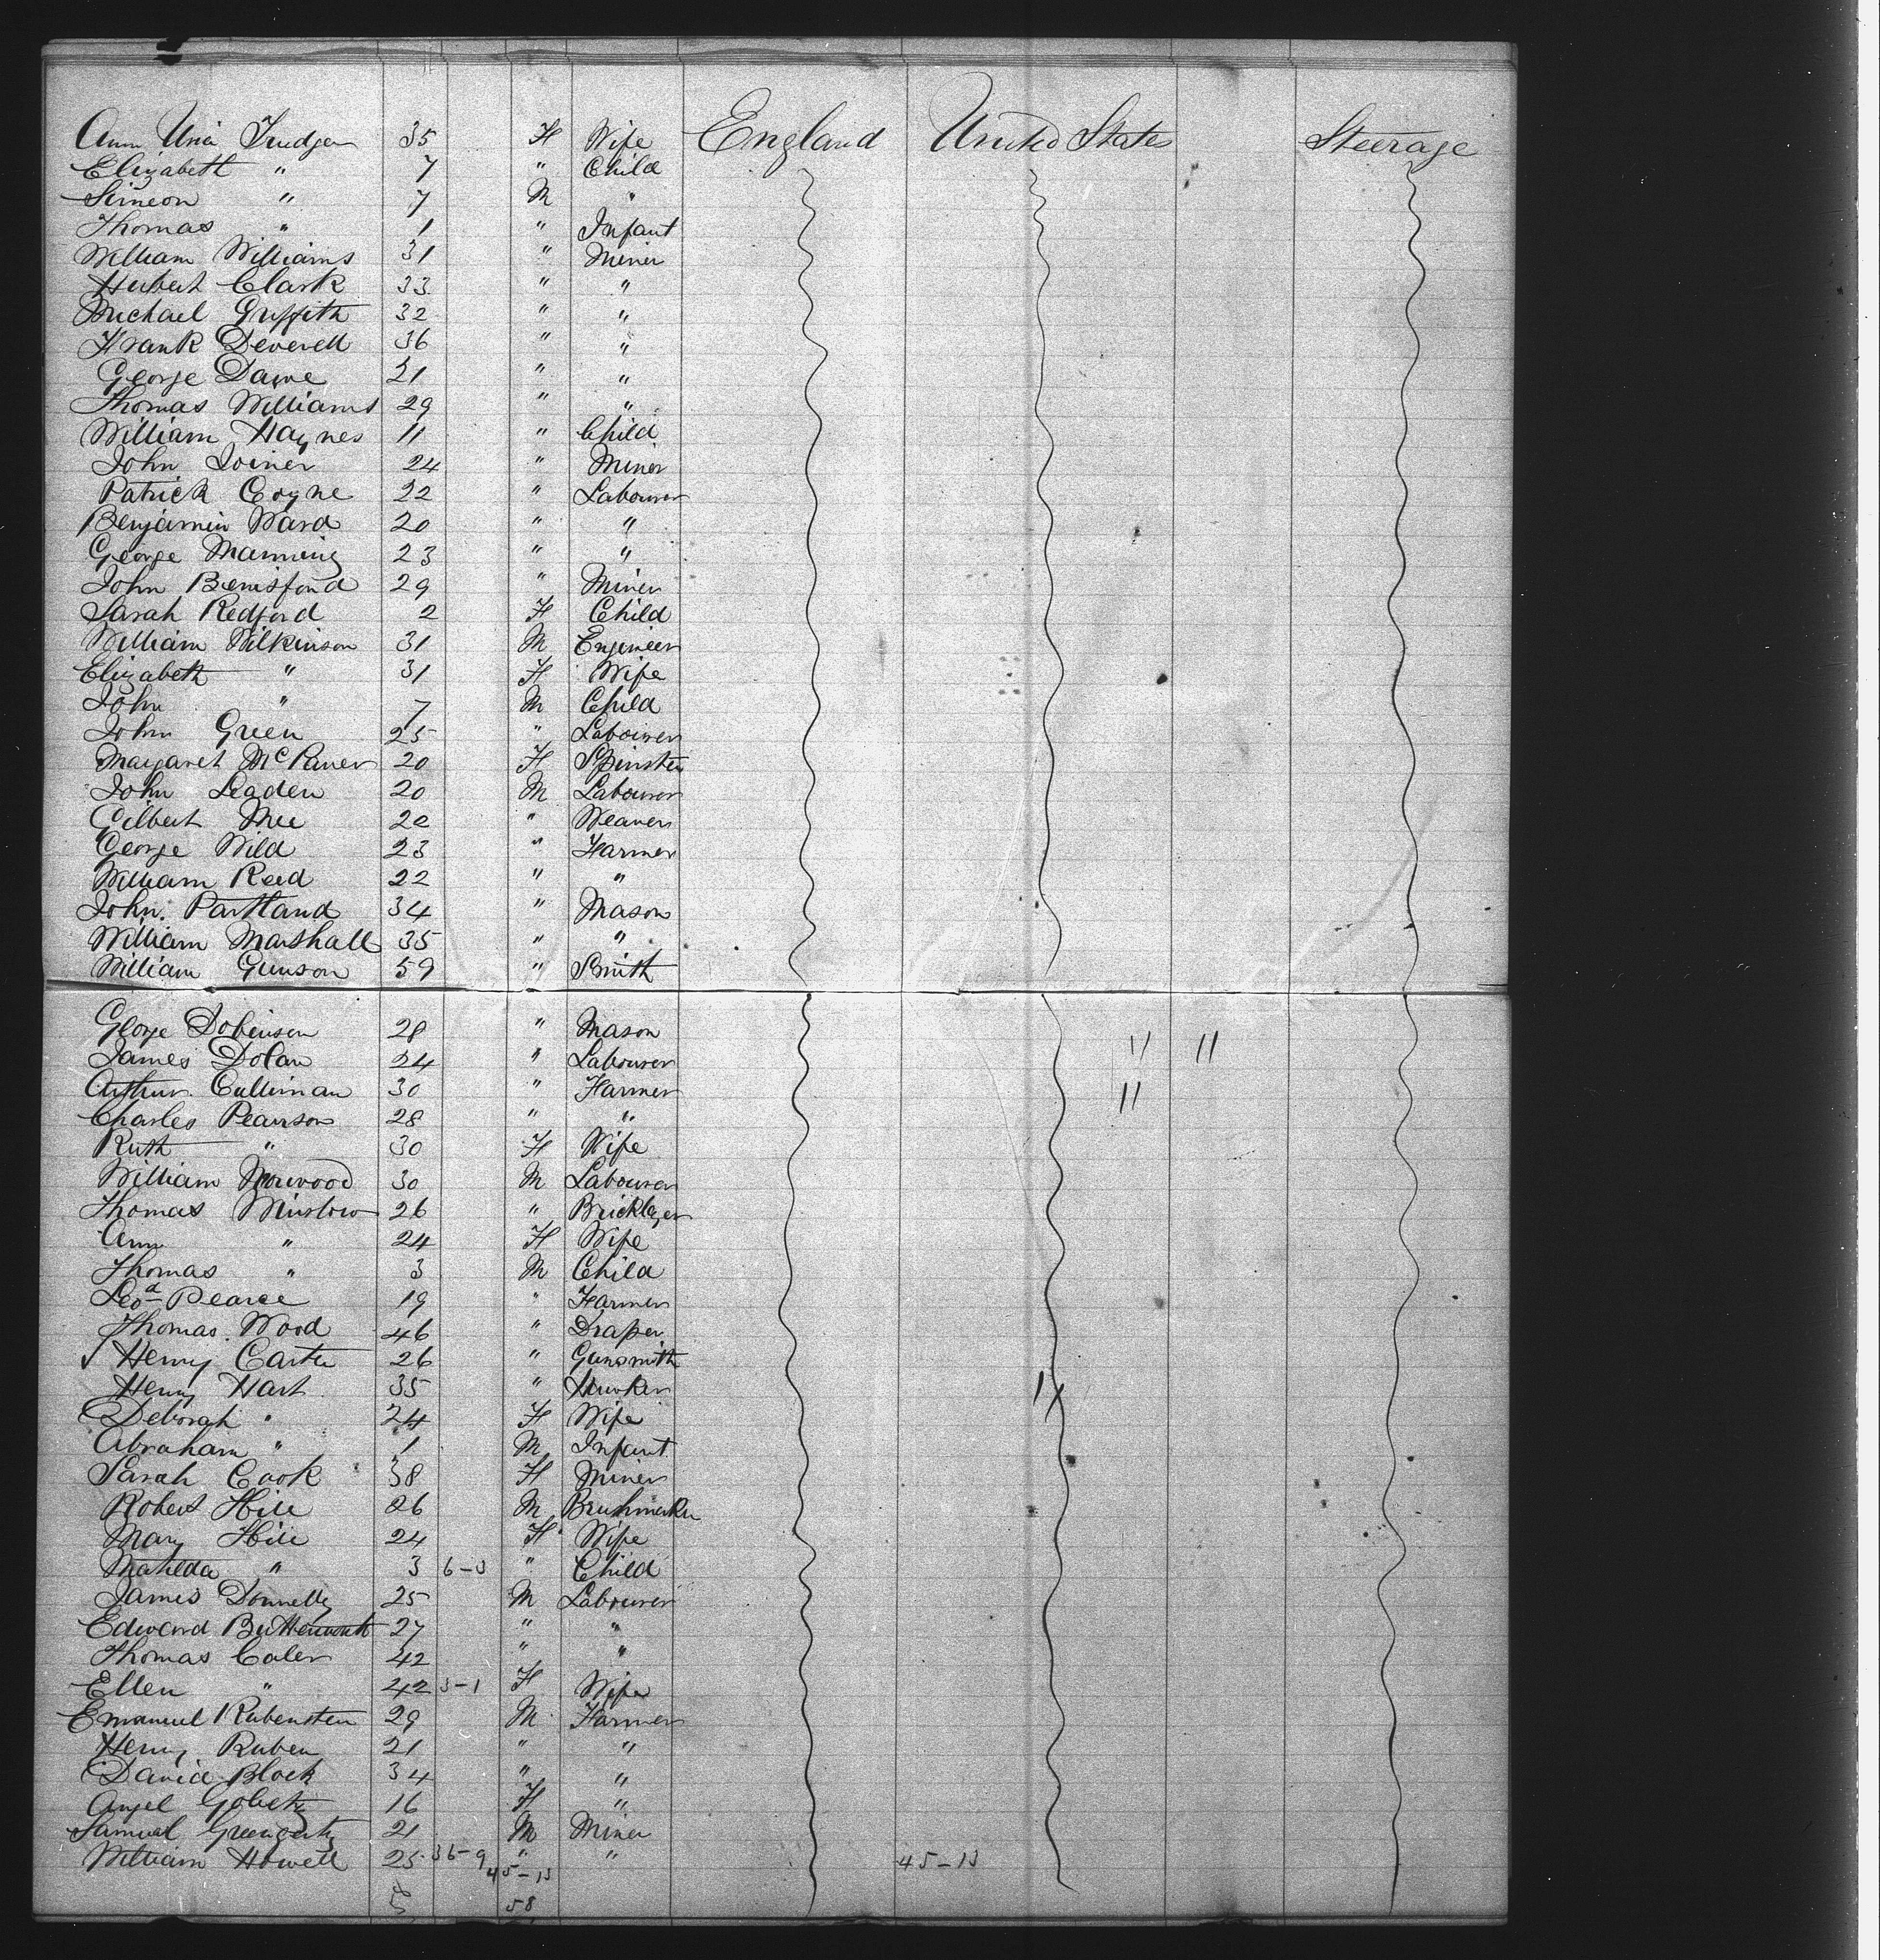 Ann Uria Trudgen 35 F Wife England United State Steerage
Elizabeth " 7 " Child
Simeon " 7 M "
Thomas " 1 " Infant
William Williams 31 " Miner
Hubert Clark 33 " "
Michael Griffith 32 " "
Frank Deverell 36 " "
George Dawe 21 " "
Thomas Williams 29 " "
William Haynes 11 " Child
John Joiner 24 " Miner
Patrick Coyne 22 " Labourer
Benjamin Ward 20 " "
George Manning 23 " "
John Berrisford 29 " Miner
Sarah Redford 2 F Child
William Wilkinson 31 M Engineer
Elizabeth " 31 F Wife
John " 7 M Child
John Green 25 " Labourer
Margaret 20 F Spinster
John Leaden 20 M Labourer
Gilbert Mee 20 " Weaver
George Wild 23 " Farmer
William Reed 22 " "
John Partland 34 " Mason
William Marshall 35 " "
William Gunson 59 " Smith
George Dobinson 28 " Mason
James Dolan 24 " Labourer 11 11
Arthur Cullinan 30 " Farmer 11
Charles Pearson 28 " "
Ruth " 30 F Wife
William Norwood 30 M Labourer
Thomas Winslow 26 " Bricklayer
Ann " 24 F Wife
Thomas " 3 M Child
Leod Pearce 19 " Farmer
Thomas Wood 46 " Draper
Henry Carter 26 " Gunsmith
Henry Hart 35 " Hawker
Deborah " 24 F Wife
Abraham " 1 M Infant
Sarah Cook 38 F Miner
Robert Hill 26 M Brushmaker
Mary Hill 24 F Wife
Matilda " 3 6-3 " Child
James Donnelly 25 M Labourer
Edward Butterworth 27 " "
Thomas Caler 42 " "
Ellen " 42 3-1 F Wife
Emanuel Rubenstein 29 M Farmer
Henry Ruben 21 " "
David Block 34 " "
Angel Goletz 16 F "
Samuel 21 M Miner
William Howell 25 36-9 " " 45-13
45-13
58